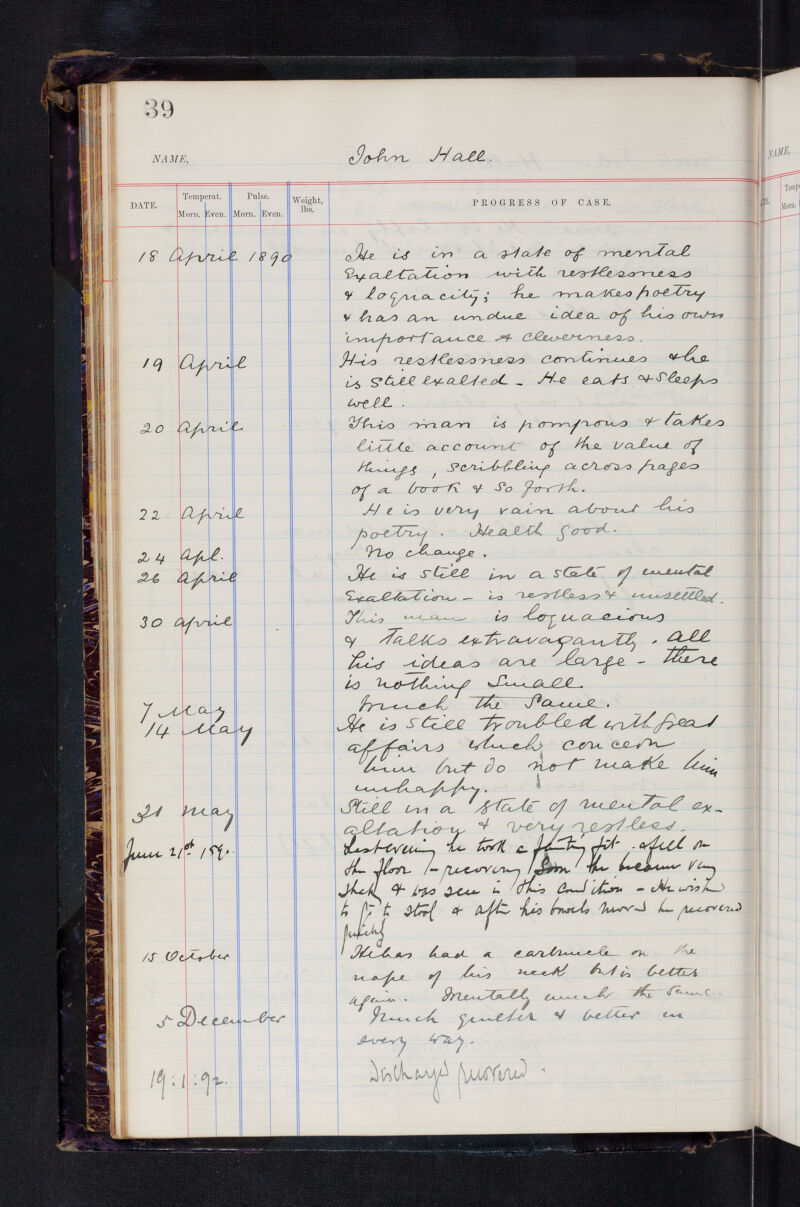 39
NAME, John Hall.
DATE. Temperat. Morn. Even. Pulse. Morn. Even. Weight, lbs. PROGRESS OF CASE.
18 April 1890 He is in a state of mental
Exaltation with restlessness
& loquacity; he makes poetry
& has an undue idea of his own
importance & cleverness.
19 April His restlessness continues & he
is still exalted - He eats & sleeps
well.
20 April This man is pompous & takes
little account of the value of
things, scribbling across pages
of a book & so forth.
22. April He is very vain about his
poetry. Health good.
24 Apl. No change.
26 April He is still in a state of mental
Exaltation - is restless & unsettled.
30 April This man is loquacious
& talks extravagantly. All
his ideas are large - there
is nothing small.
7 May Much the same.
14 May He is still troubled with great
affairs which concern
him but do not make him
unhappy.
21 May Still in a state of mental ex-
altation & very restless.
June 21st 189. Last evening he took a fainting fit & fell on
the floor - recovering soon then became very
& was seen in this condition - He wished
to go to stool & after his bowels moved he recovered
quickly
15 October He has had a carbuncle on the
nape of his neck but is better
again. Mentally much the same.
5 December Much quieter & better in
every way.
19:1:92. Discharged recovered.
NAME,
Temp
Morn.